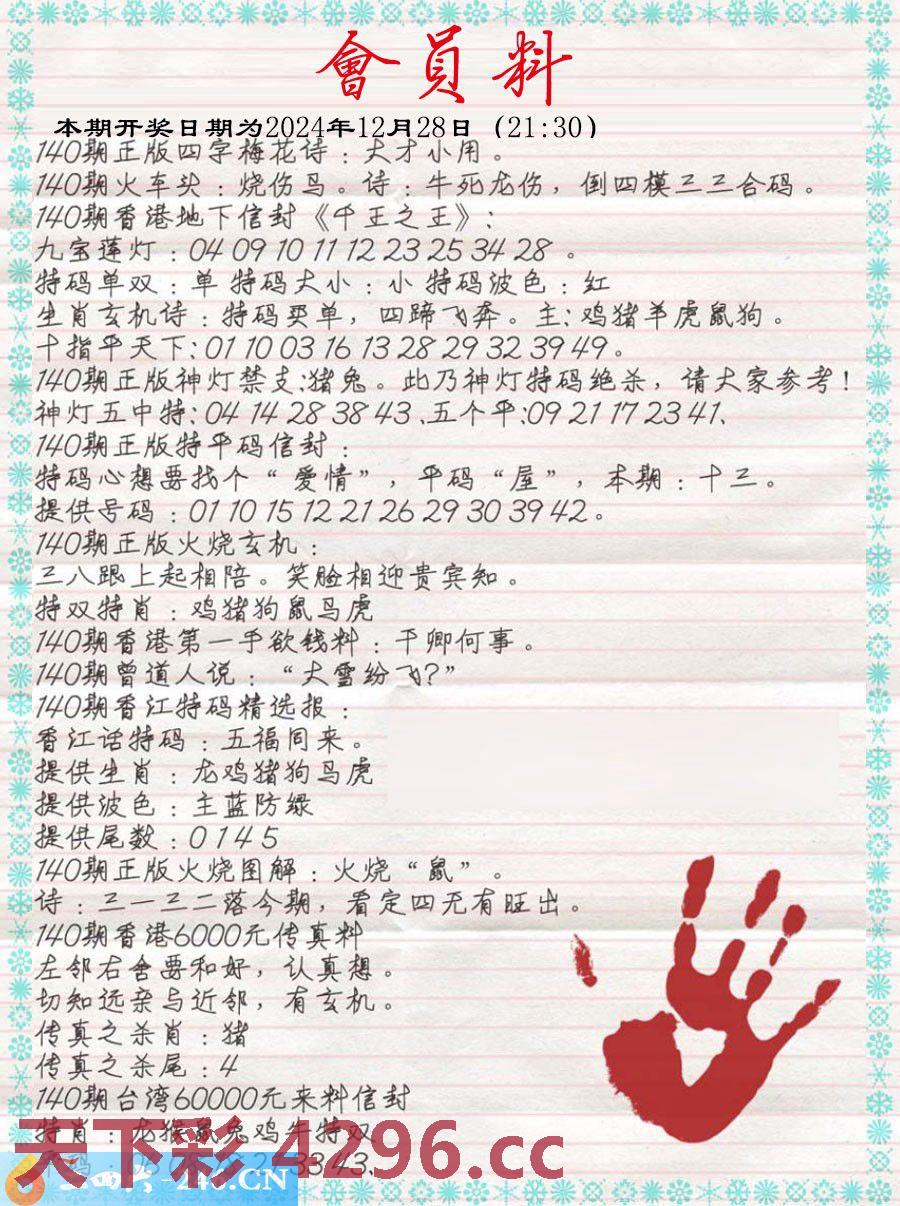 會員料
本期开奖日期为2024年12月28日（21:30）
140期正版四字梅花诗：大才小用。
140期火车头：烧伤鸟。诗：牛死龙伤，倒四模三三合码。
140期香港地下信封《千王之王》：
九宝莲灯：04 09 10 11 12 23 25 34 28 。
特码单双：单 特码大小：小 特码波色：红
生肖玄机诗：特码买单，四蹄飞奔。主：鸡猪羊虎鼠狗。
十指平天下：01 10 03 16 13 28 29 32 39 49。
140期正版神灯禁支：猪兔。此乃神灯特码绝杀，请大家参考！
神灯五中特：04 14 28 38 43 、五个平：09 21 17 23 41、
140期正版特平码信封：
特码心想要找个“爱情”，平码“屋”，本期：十三。
提供号码：01 10 15 12 21 26 29 30 39 42。
140期正版火烧玄机：
三八跟上起相陪。笑脸相迎贵宾知。
特双特肖：鸡猪狗鼠马虎
140期香港第一手欲钱料：干卿何事。
140期曾道人说：“大雪纷飞？”
140期香江特码精选报：
香江话特码：五福同来。
提供生肖：龙鸡猪狗马虎
提供波色：主蓝防绿
提供尾数：0 1 4 5
140期正版火烧图解：火烧“鼠”。
诗：三一三二落今期，看定四无有旺出。
140期香港6000元传真料
左邻右舍要和好，认真想。
切知远亲与近邻，有玄机。
传真之杀肖：猪
传真之杀尾：4
140期台湾60000元来料信封
特肖：龙猴鼠兔鸡牛特双
天下彩 4296.cc
43、
-246.CN